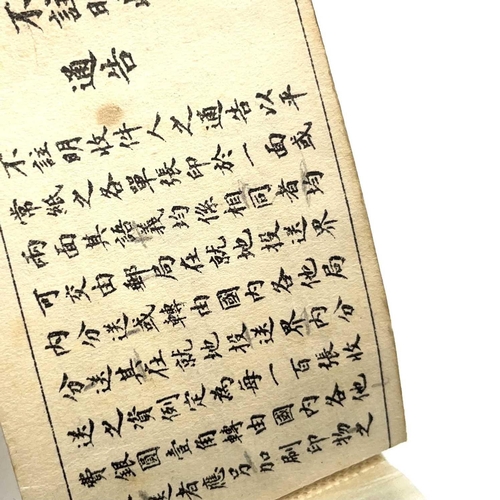 不註明收
通告
不註明收件人之通告以平
常紙之各單張印於一面或
兩面其語義均係相同者均
可交由郵局在就地投送界
內分送或轉由國內各他局
分送其在就地投送界內分
送之資例定為每一百張收
費銀圓壹角轉由國內各他
者應另加刷印物之